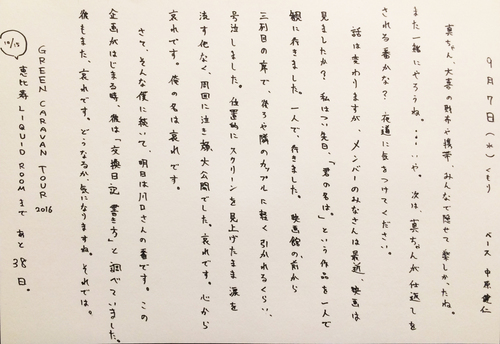 9月7日(水)くもり
ベース 中原健仁
真ちゃん、大喜の財布や携帯、みんなで隠せて楽しかったね。
また一緒にやろうね。…いや。次は、真ちゃんが仕返しを
される番かな?夜道に気をつけてください。
話は変わりますが、メンバーのみなさんは最近、映画は
見ましたか?私はつい先日、「君の名は。」という作品を一人で
観に行きました。一人で、行きました。映画館の、前から
三列目の席で、後ろや隣のカップルに軽く引かれるくらい、
号泣しました。位置的にスクリーンを見上げたまま涙を
流す他なく、周囲に泣き顔大公開でした。哀れです。心から
哀れです。俺の名は哀れです。
さて、そんな僕に続いて、明日は川口さんの番です。この
企画がはじまる時、彼は「交換日記 書き方」と調べていました。
彼もまた、哀れです。どうなるか、気になりますね。それでは。
GREEN CARAVAN TOUR 2016
10/15
恵比寿LIQUIDROOMまであと38日。